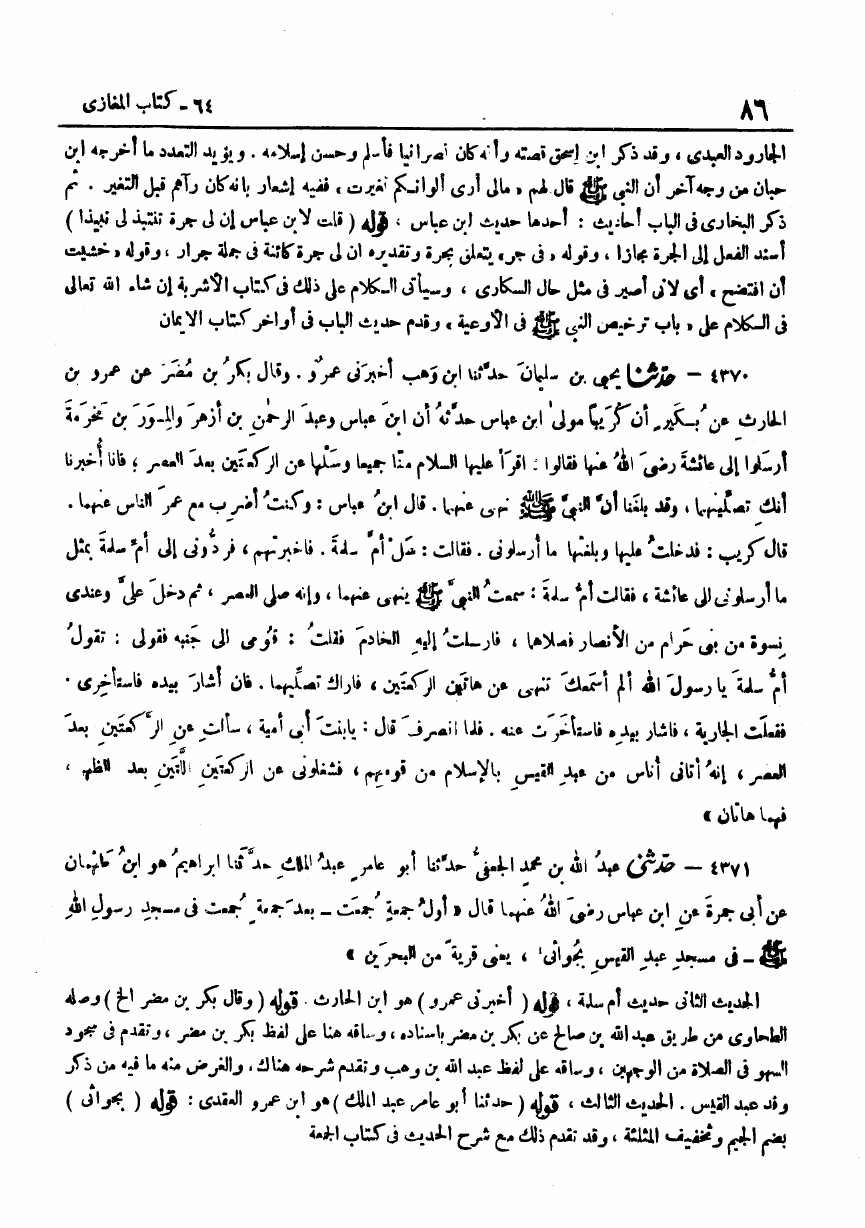 ٨٦
٦٤ - كتاب المغازى
الجارود العبدى ، وقد ذكر ابن إسحق قصته وأنه كان نصرانيا فأسلم وحسن إسلامه . ويؤيد التعدد ما أخرجه ابن
حبان من وجه آخر أن النبى ﷺ قال لهم « مالى أرى ألوانكم تغيرت » ففيه إشعار بانه كان رآهم قبل التغير . ثم
ذكر البخارى فى الباب أحاديث : أحدها حديث ابن عباس ، قوله ( قلت لابن عباس إن لى جرة تنتبذ لى نبيذا )
أسند الفعل إلى الجرة مجازا ، وقوله « فى جر » يتعلق بجرة وتقديره ان لى جرة كائنة فى جملة جرار ، وقوله « خشيت
أن افتضح » أى لانى أصير فى مثل حال السكارى ، وسيأتى الكلام على ذلك فى كتاب الأشربة إن شاء الله تعالى
فى الكلام على « باب ترخيص النبى ﷺ فى الأوعية » وقدم حديث الباب فى أواخر كتاب الايمان
٤٣٧٠ - حدّثنا يحيى بن سليمانَ حدَّثنا ابن وَهب أخبرَنى عمرٌو . وقال بكرُ بن مُضَرَ عن عمرو بن
الحارثِ عن بُكَيرٍ أن كُرَيبًا مولىٰ ابن عباس حدَّثهُ أن ابنَ عباس وعبدَ الرحمٰنِ بن أزهرَ والمِسوَرَ بن مَخرَمةَ
أرسَلوا إلى عائشةَ رضىَ اللهُ عنها فقالوا : اقرَأْ عليها السلام منّا جميعا وسَلْها عن الركعتَين بعدَ العصر ؛ فانا أُخبرنا
أنكِ تصلِّينهما ، وقد بلَغَنا أنَّ النبىَّ ﷺ نهى عنهما . قال ابنُ عباس : وكنتُ أضرِب مع عمرَ الناس عنهما .
قال كريب : فدخلتُ عليها وبلغتُها ما أرسلونى . فقالت : سَلْ أمَّ سلمةَ . فاخبرتهم ، فردُّونى إلى أمِّ سلمةَ بمثل
ما أرسلونى الى عائشة ، فقالت أمُّ سلمةَ : سمعتُ النبىَّ ﷺ ينهى عنهما ، وإنه صلى العصر ، ثم دخلَ علىَّ وعندى
نِسوة من بنى حَرام من الأنصار فصلاهما ، فارسلتُ إليهِ الخادمَ فقلتُ : قومى الى جَنبه فقولى : تقولُ
أمُّ سلمةَ يا رسولَ الله ألم أسمَعكَ تنهى عن هاتَينِ الركعتَين ، فاراك تصلِّيهما . فان أشارَ بيده فاستأخِرى .
ففعلَت الجارية ، فاشار بيدِه فاستأخَرَت عنه . فلما انصرفَ قال : يابنتَ أبى أمية ، سألتِ عنِ الركعتَينِ بعدَ
العصر ، إنهُ أتانى أناس من عبدِ القيسِ بالإسلام من قومِهم ، فشغلونى عن الركعتَينِ اللَّتَينِ بعد الظهر ،
فهما هاتان »
٤٣٧١ - حدّثنى عبدُ الله بن محمدٍ الجعفىُّ حدَّثنا أبو عامرٍ عبدُ الملكِ حدَّثنا ابراهيمُ هو ابنُ طَهْمان
عن أبى جمرةَ عنِ ابن عباس رضىَ اللهُ عنهما قال « أولُ جمعةٍ جُمعَت - بعدَ جمعةٍ جُمعت فى مسجدِ رسولِ اللهِ
ﷺ - فى مسجدِ عبدِ القيسِ بجُواثىٰ ، يعنى قريةً من البحرَين »
الحديث الثانى حديث أم سلمة ، قوله ( أخبرنى عمرو ) هو ابن الحارث . قوله ( وقال بكر بن مضر الخ ) وصله
الطحاوى من طريق عبد الله بن صالح عن بكر بن مضر باسناده ، وساقه هنا على لفظ بكر بن مضر ، وتقدم فى سجود
السهو فى الصلاة من الوجهين ، وساقه على لفظ عبد الله بن وهب وتقدم شرحه هناك ، والغرض منه ما فيه من ذكر
وفد عبد القيس . الحديث الثالث ، قوله ( حدثنا أبو عامر عبد الملك ) هو ابن عمرو العقدى : قوله ( بجواثى )
بضم الجيم وتخفيف المثلثة ، وقد تقدم ذلك مع شرح الحديث فى كتاب الجمعة